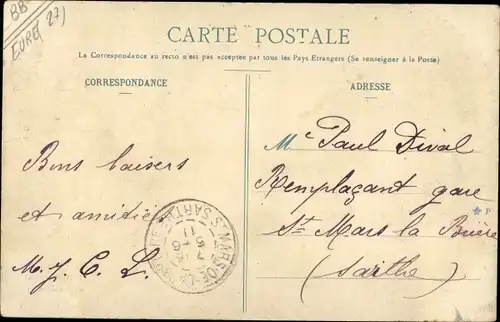 BB
EURE (27)
CARTE POSTALE
La Correspondance au recto n'est pas acceptée par tous les Pays Etrangers (Se renseigner à la Poste)
CORRESPONDANCE
ADRESSE
Bons baisers
et amitiés
M. J. C. L.
Mr Paul Dival
Remplaçant gare
St Mars la Brière
(Sarthe)
ST MARS-DE-LA-BRIÈRE SARTHE
7 -4
5 -6
11